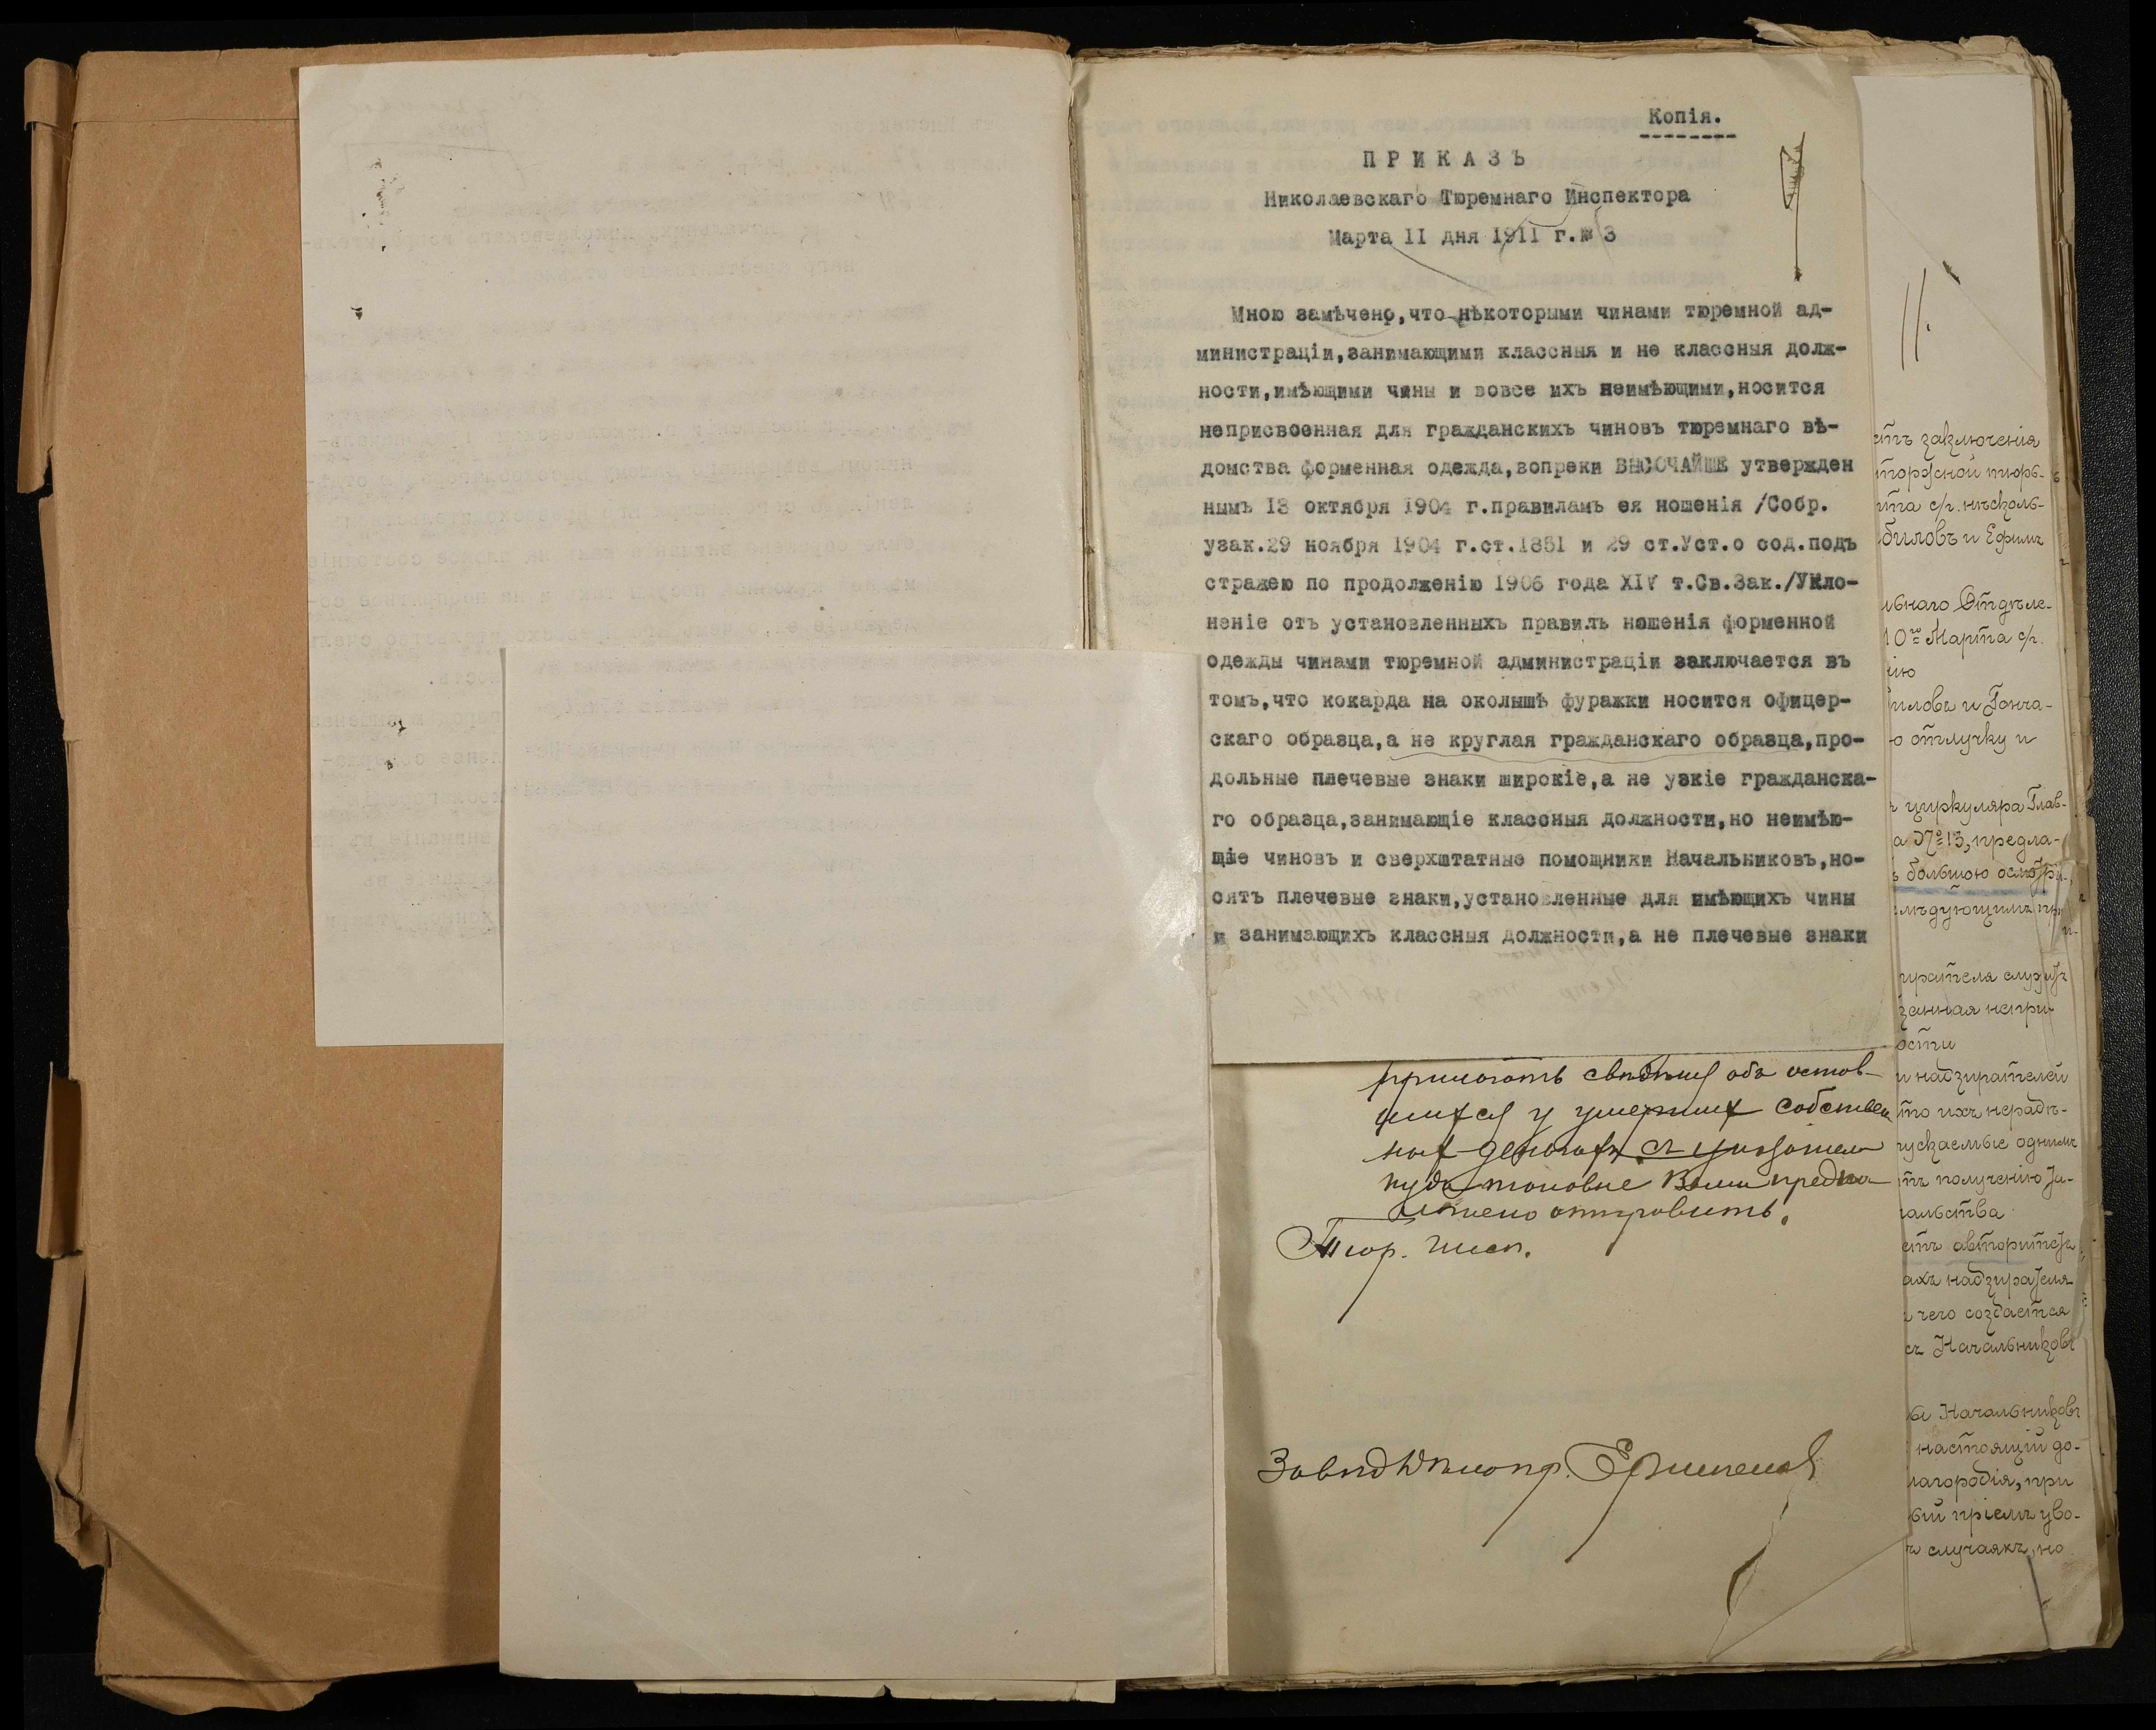 Копія.
ПРИКАЗЪ
Николаевскаго Тюремнаго Инспектора
Марта 11 дня 1911 г.№ 3
Мною замѣчено,что нѣкоторыми чинами тюремной ад-
министраціи,занимающими классныя и не классныя долж-
ности,имѣющими чины и вовсе ихъ неимѣющими,носится
неприсвоенная для гражданскихъ чиновъ тюремнаго вѣ-
домства форменная одежда,вопреки ВЫСОЧАЙШЕ утвержден
нымъ 13 октября 1904 г.правиламъ ея ношенія /Собр.
узак.29 ноября 1904 г.ст.1851 и 29 ст.Уст.о сод.подъ
стражею по продолженію 1906 года XIV т.Св.Зак./Укло-
неніе отъ установленныхъ правилъ ношенія форменной
одежды чинами тюремной администраціи заключается въ
томъ,что кокарда на околышѣ фуражки носится офицер-
скаго образца,а не круглая гражданскаго образца,про-
дольные плечевые знаки широкіе,а не узкіе гражданска-
го образца,занимающіе классныя должности,но неимѣю-
щіе чиновъ и сверхштатные помощники Начальниковъ,но-
сятъ плечевые знаки,установленные для имѣющихъ чины
и занимающихъ классныя должности,а не плечевые знаки
прилогать свѣдѣнія объ остав-
шихся у умершихъ собствен
ныхъ деньгахъ съ указаніем
куда таковые Вами предпо
ложено отправить.
Тюр. Инсп.
11.
заключенія
торжной тюрь-
с/г. нѣсколь-
биловъ и Ефимъ
льнаго Отдѣле-
10го Марта с/г.
нію
илова и Гонча-
ю отлучку и
циркуляра Глав-
а №13, предла-
большою осмотри-
слѣдующимъ при
ирателя служ
занная непри
ости
и надзирателей
то ихъ нерадѣ-
пускаемые однимъ
тъ полученію
чальства
етъ авторитетъ
ахъ надзирателя
чего создается
съ Начальниковъ
ка Начальниковъ
настоящій до-
лагородія, при
ый пріемъ уво-
случаяхъ, но